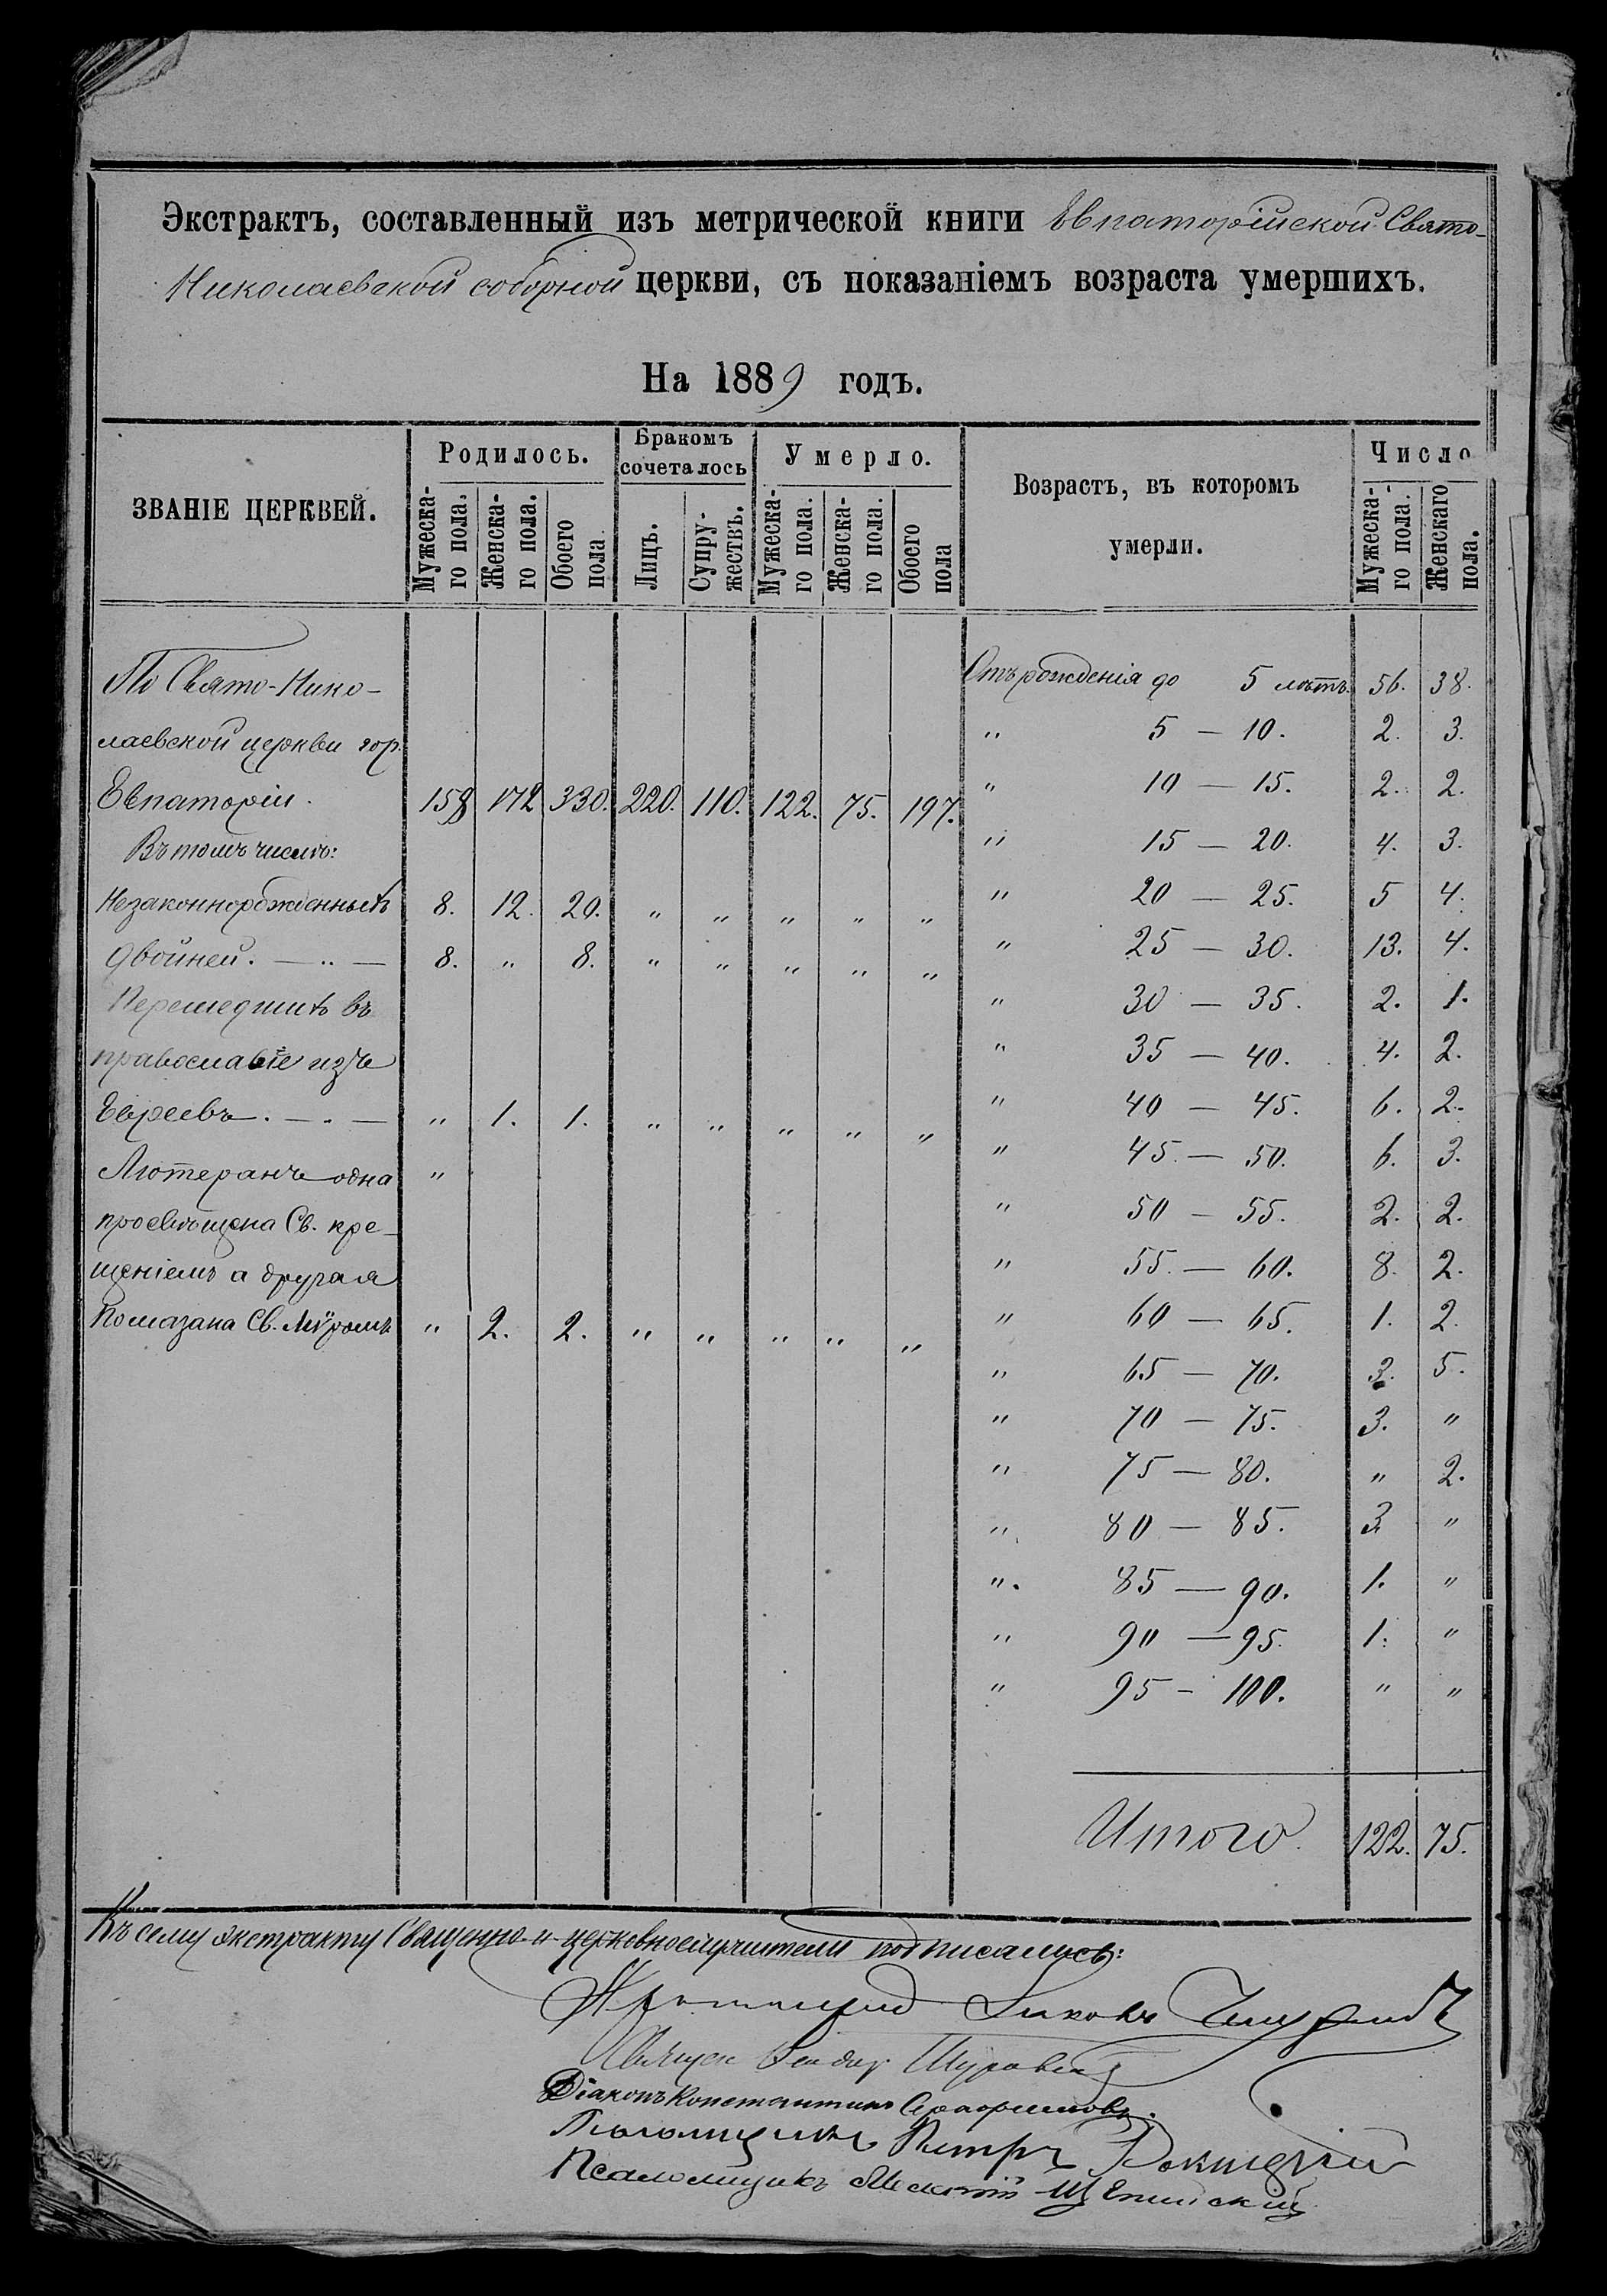 Экстрактъ, составленный изъ метрической книги Евпаторійской Свято-
Николаевской соборной церкви, съ показаніемъ возраста умершихъ.
На 1889 годъ.
ЗВАНІЕ ЦЕРКВЕЙ.
Родилось.
Мужеска-
го пола.
Женска-
го пола.
Обоего
пола.
Бракомъ
сочеталось
Лицъ.
Супру-
жествъ.
Умерло.
Мужеска-
го пола.
Женска-
го пола.
Обоего
пола
Возрастъ, въ которомъ
умерли.
Число
Мужеска-
го пола.
Женскаго
пола.
По Свято-Нико-
лаевской церкви гор.
Евпаторіи. 158 172 330. 220. 110. 122. 75. 197.
Въ томъ числѣ:
Незаконнорожденныхъ 8. 12. 20. " " " " "
Двойней. — " — 8. " 8. " " " " "
Перешедшихъ въ
православіе изъ
Евреевъ. — . — " 1. 1. " " " " "
Лютеранъ одна "
просвѣщена Св. кре-
щеніемъ а другая
помазана Св. Мѵромъ " 2. 2. " " " " "
Отъ рожденія до 5 лѣтъ 56. 38.
" 5 — 10. 2. 3.
" 10 — 15. 2. 2.
" 15 — 20. 4. 3.
" 20 — 25. 5 4.
" 25 — 30. 13. 4.
" 30 — 35. 2. 1.
" 35 — 40. 4. 2.
" 40 — 45. 6. 2.
" 45. — 50. 6. 3.
" 50 — 55. 2. 2.
" 55. — 60. 8. 2.
" 60 — 65. 1. 2.
" 65 — 70. 3. 5.
" 70 — 75. 3. "
" 75 — 80. " 2.
" 80 — 85. 3. "
" 85 — 90. 1. "
" 90 — 95. 1. "
" 95 - 100. " "
Итого. 122. 75.
Къ сему экстракту Священно-и-церковнослужители подписались:
Протоіерей Іаковъ
Священ
Діаконъ Константинъ Серафимовъ.
Псаломщикъ Петръ
Псаломщикъ